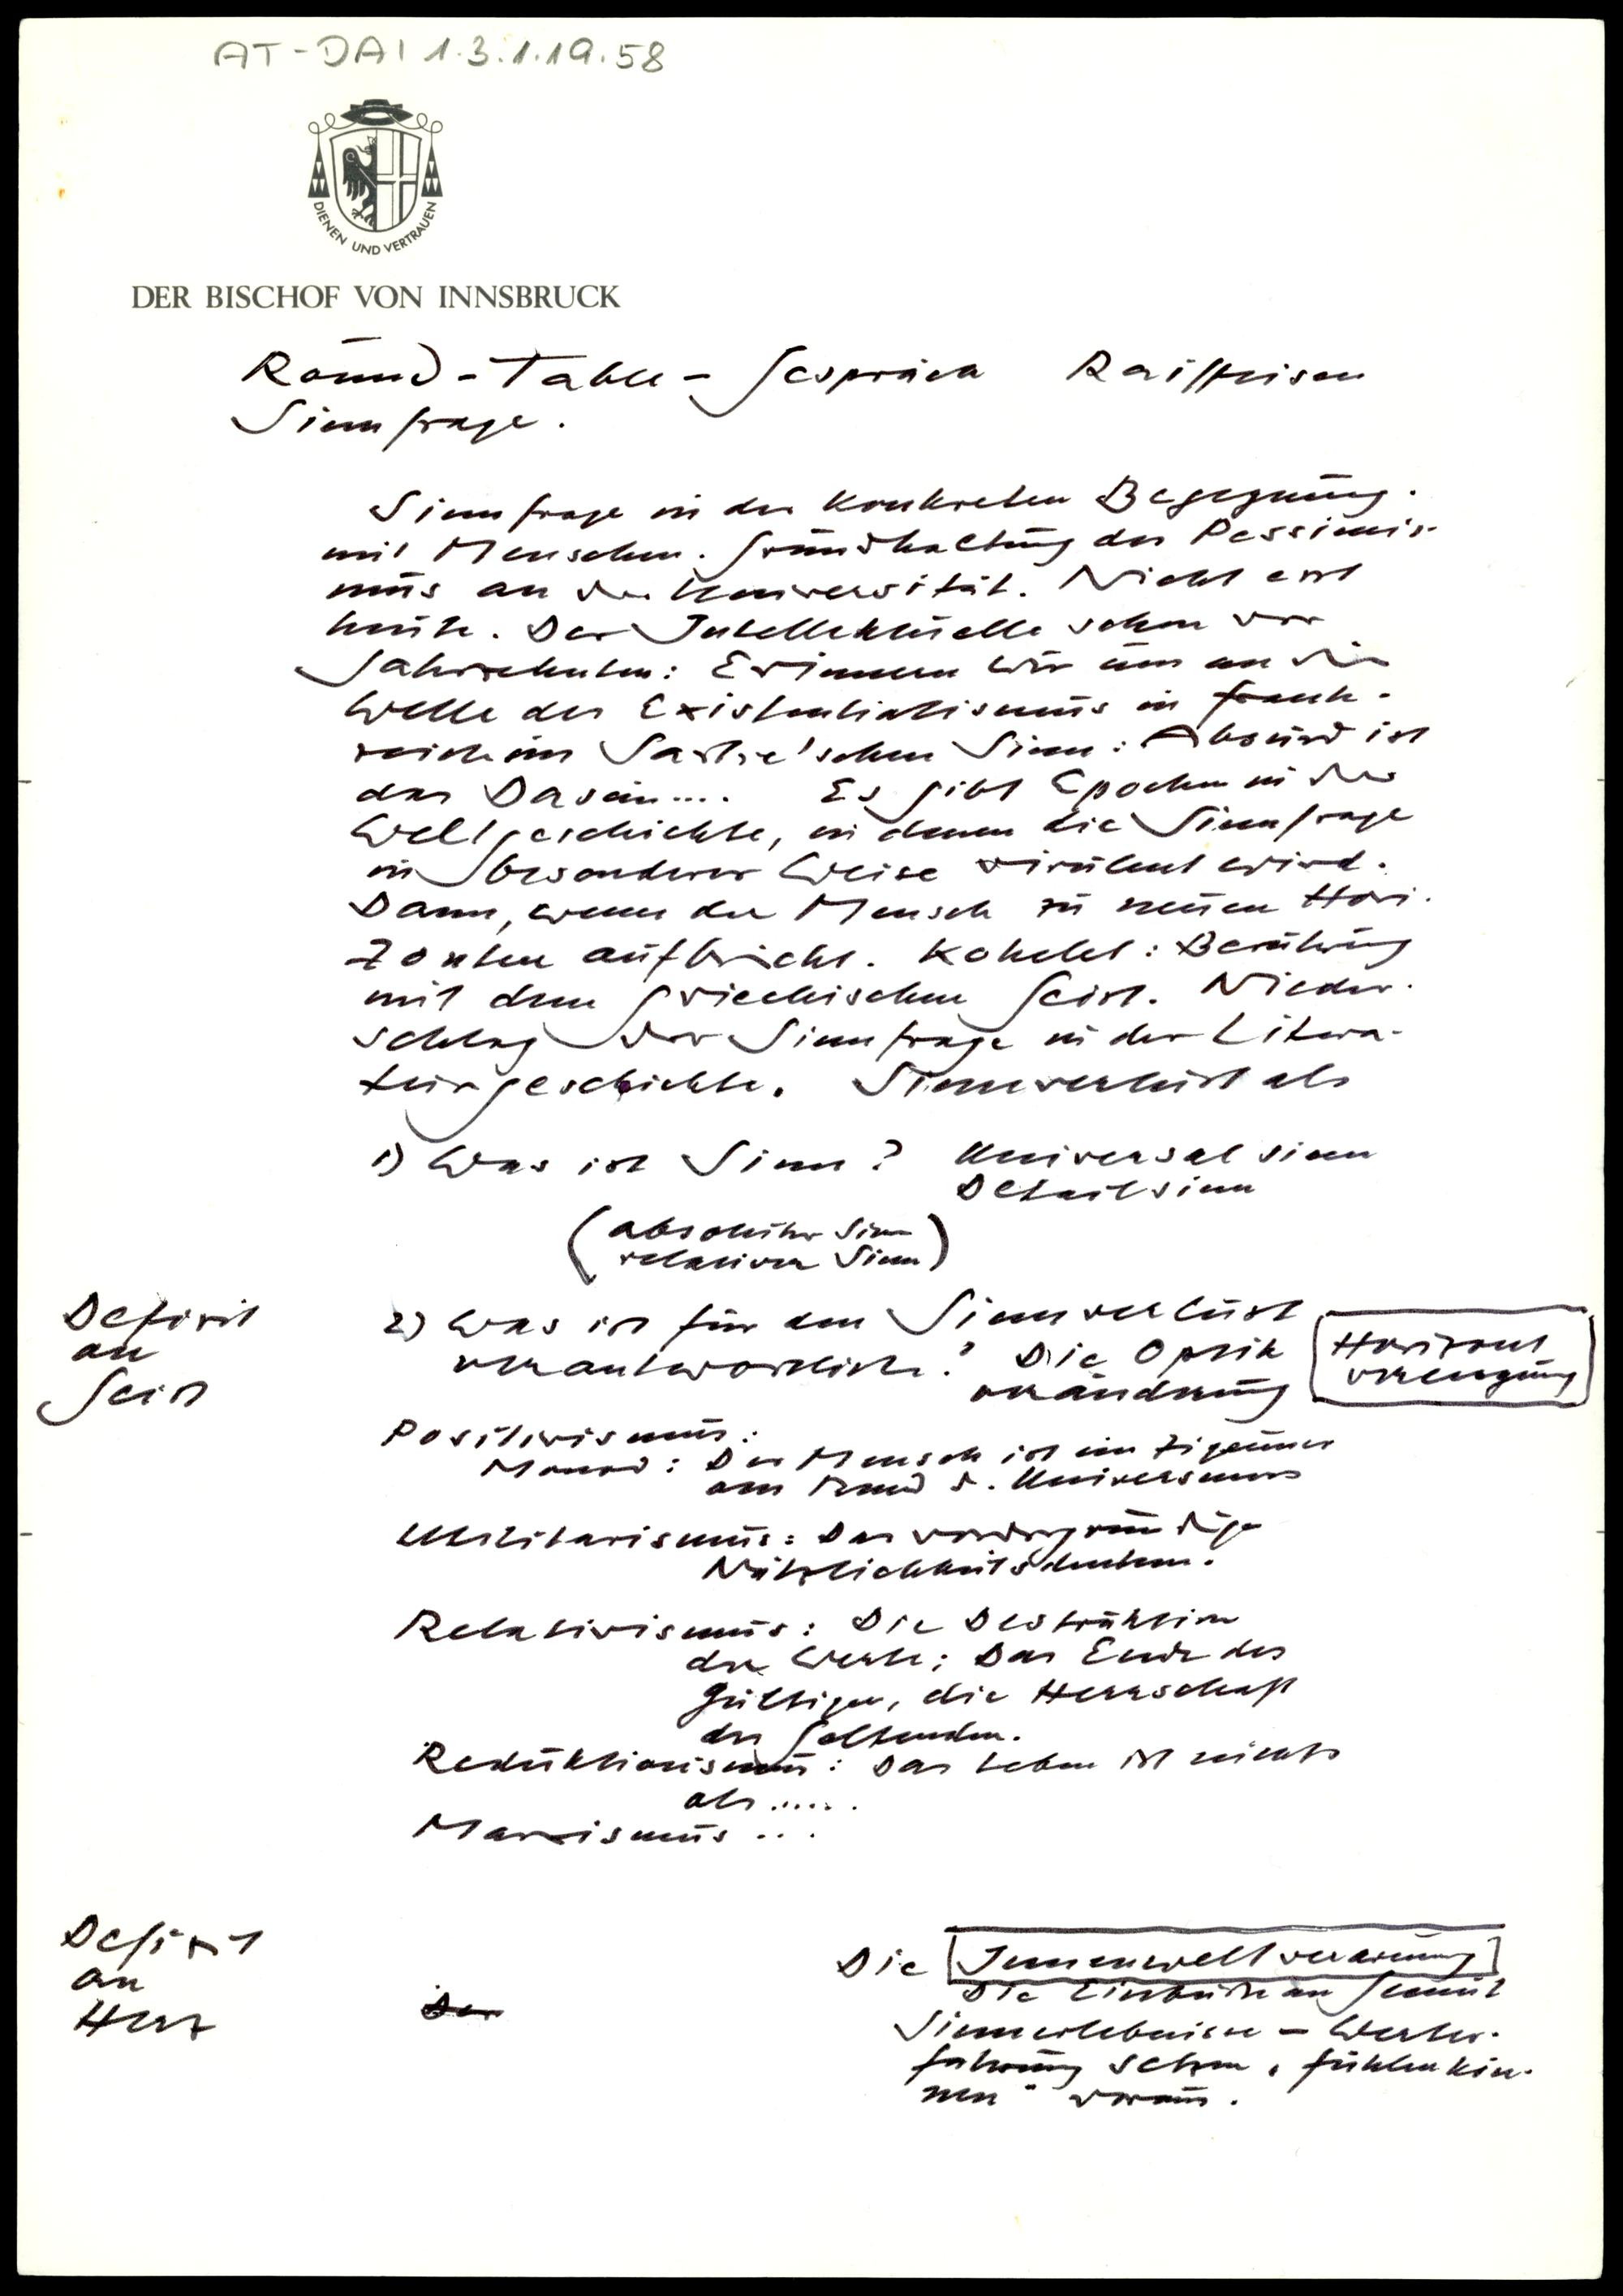 AT-DAI 1.3.1.19.58
DIENEN UND VERTRAUEN
DER BISCHOF VON INNSBRUCK
Round-Table-Gespräch Raiffeisen
Sinnfrage.
Sinnfrage in der konkreten Begegnung.
mit Menschen. Grundhaltung des Pessimis-
mus an der Universität. Nicht erst
heute. Der Intellektuelle schon vor
Jahrzehnten: Erinnern wir uns an die
Welle des Existentialismus in Frank-
reich im Sartre'schen Sinn: Absurd ist
das Dasein.... Es gibt Epochen in der
Weltgeschichte, in denen die Sinnfrage
in besonderer Weise virulent wird.
Dann, wenn der Mensch zu neuen Hori-
zonten aufbricht. Kohelet: Berührung
mit dem griechischen Geist. Nieder-
schlag der Sinnfrage in der Litera-
turgeschichte. Sinnverlust als
1) Was ist Sinn? Universalsinn
Detailsinn
(absoluter Sinn
relativer Sinn)
Defizit
an
Geist
2) Was ist für den Sinnverlust
verantwortlich? Die Optik
veränderung
Horizont
verengung
Positivismus:
Monod: Der Mensch ist ein Zigeuner
am Rand d. Universums
Utilitarismus: Das vordergründige
Nützlichkeitsdenken.
Relativismus: Die Destruktion
der Werte; Das Ende des
Gültigen, die Herrschaft
des Geltenden.
Reduktionismus: Das Leben ist nichts
als.....
Marxismus ...
Defizit
an
Herz
Der
Die Innenweltverarmung
Die Einbuße an Gemüt
Sinnerlebnisse - Werter-
fahrung setzen "fühlen kön-
nen" voraus.